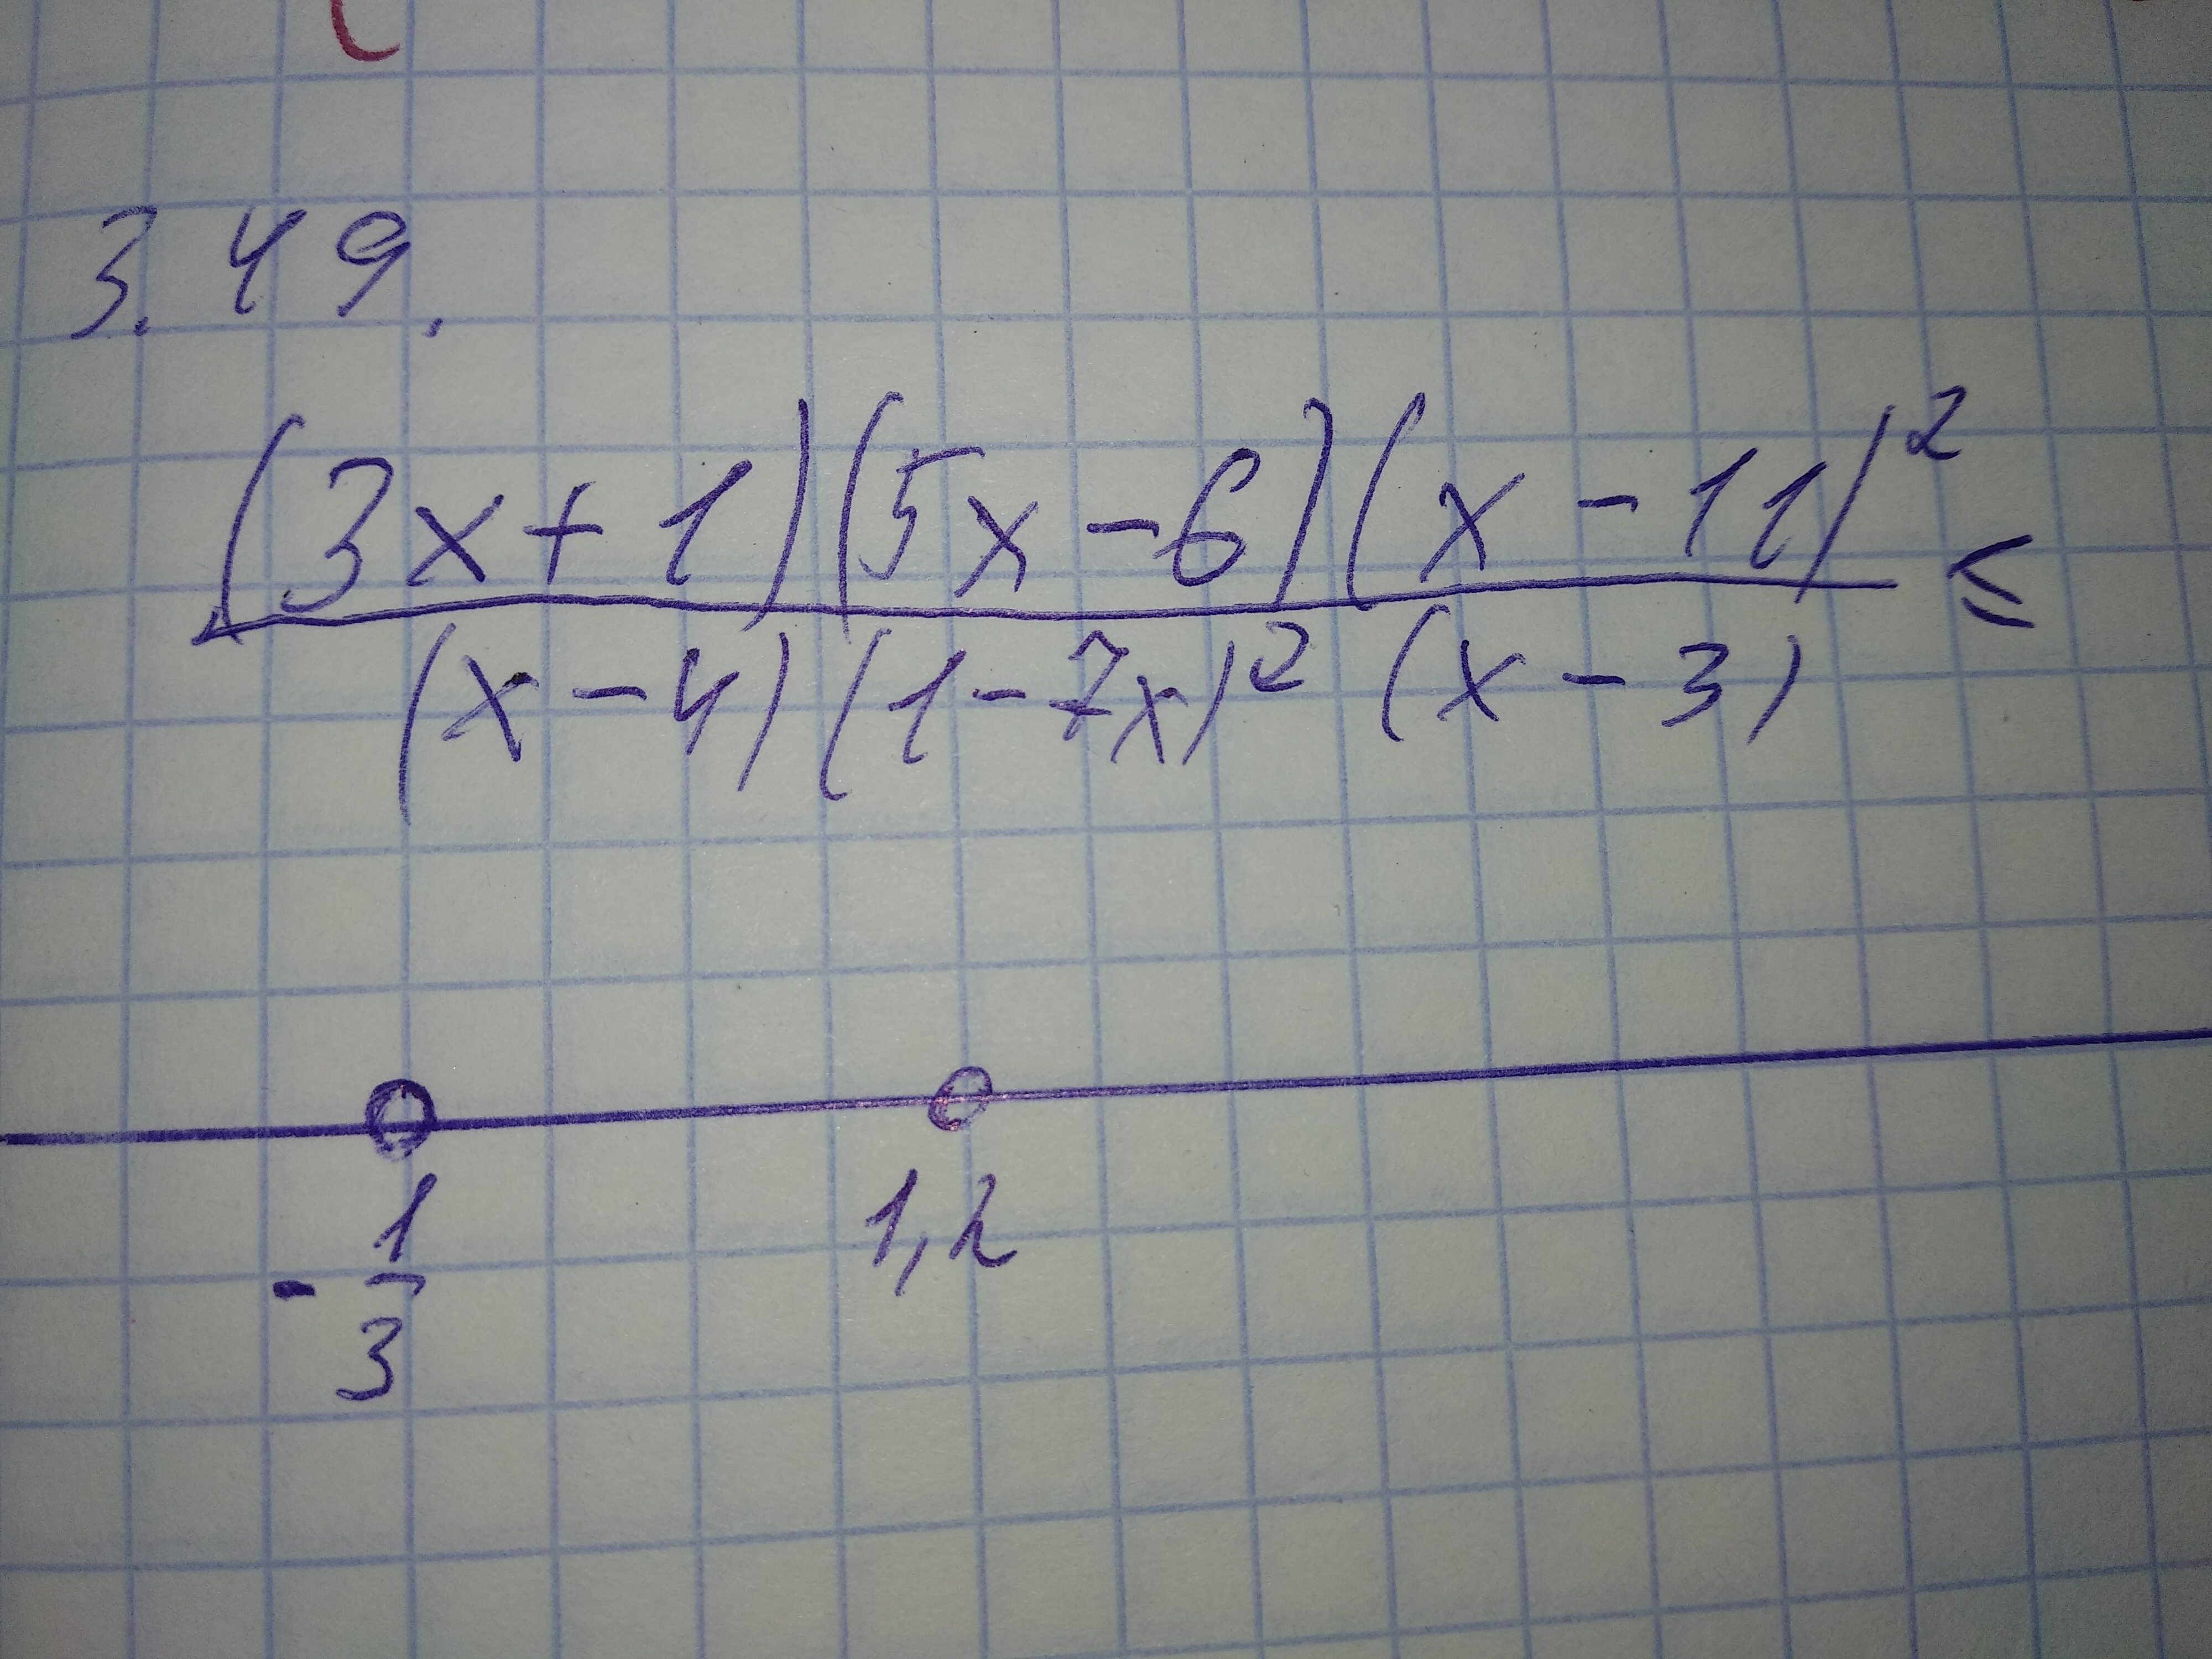 3.49.
(3x+1)(5x-6)(x-11)² ≤
(x-4)(1-7x)² (x-3)
-1/3 1,2